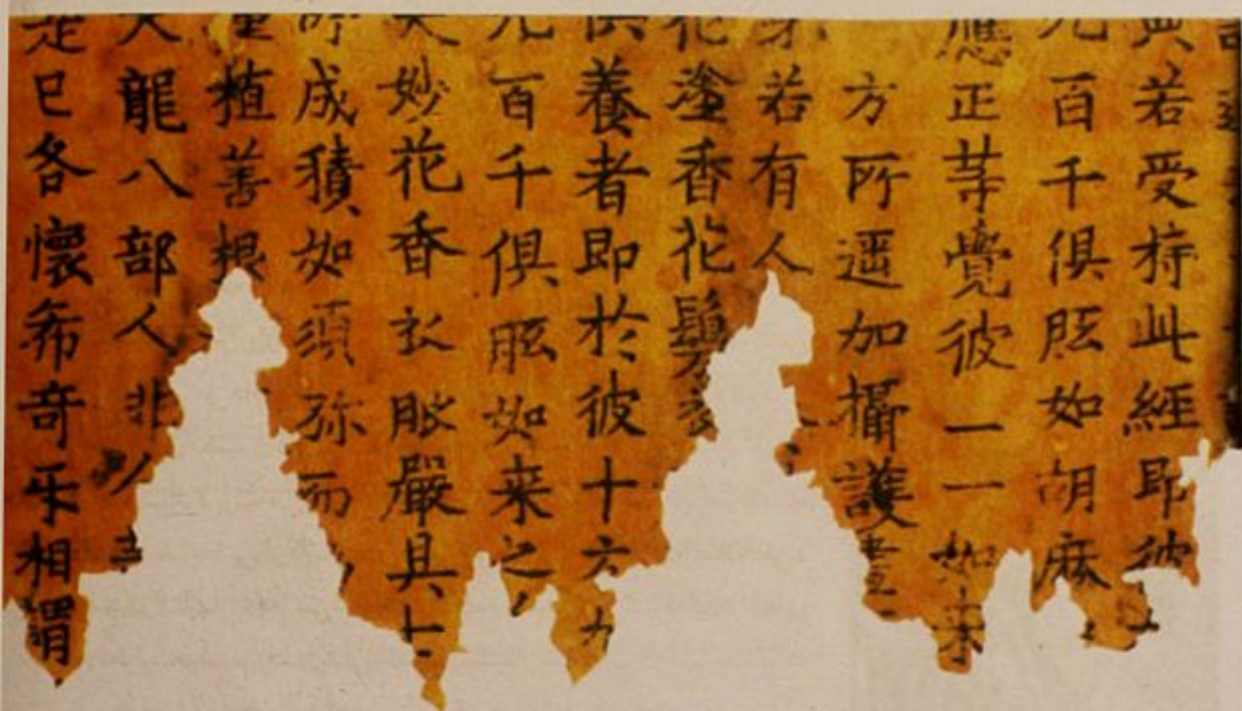 典若受持此經即彼
九百千俱胝如胡麻
應正等覺彼一一如来
方所遥加攝護晝
身若有人
花塗香花鬘衣
供養者即於彼十六九
九百千俱胝如来之
天妙花香衣服嚴具七
所成積如須弥而
種植善根
人龍八部人非人
是已各懷希奇㸦相謂